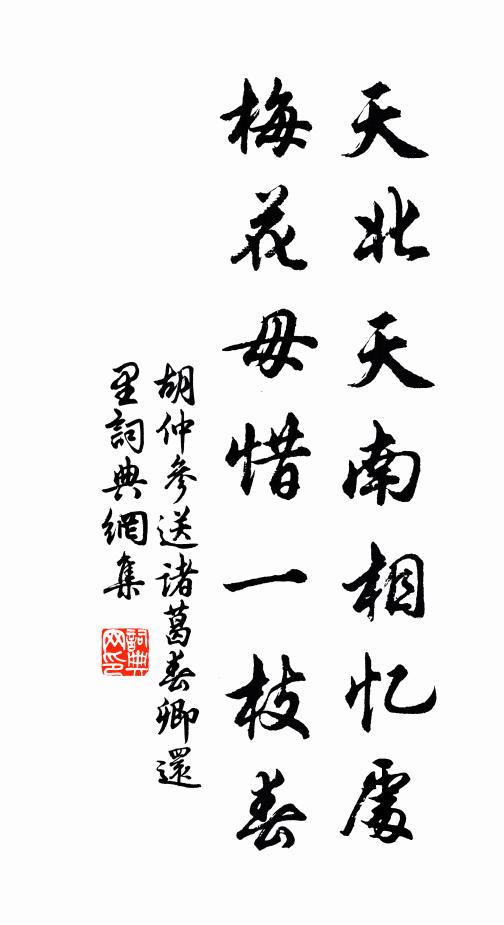 天北天南相忆處
梅花毋惜一枝春
胡仲參送諸葛春卿還
里詞典網集
詞典
网印